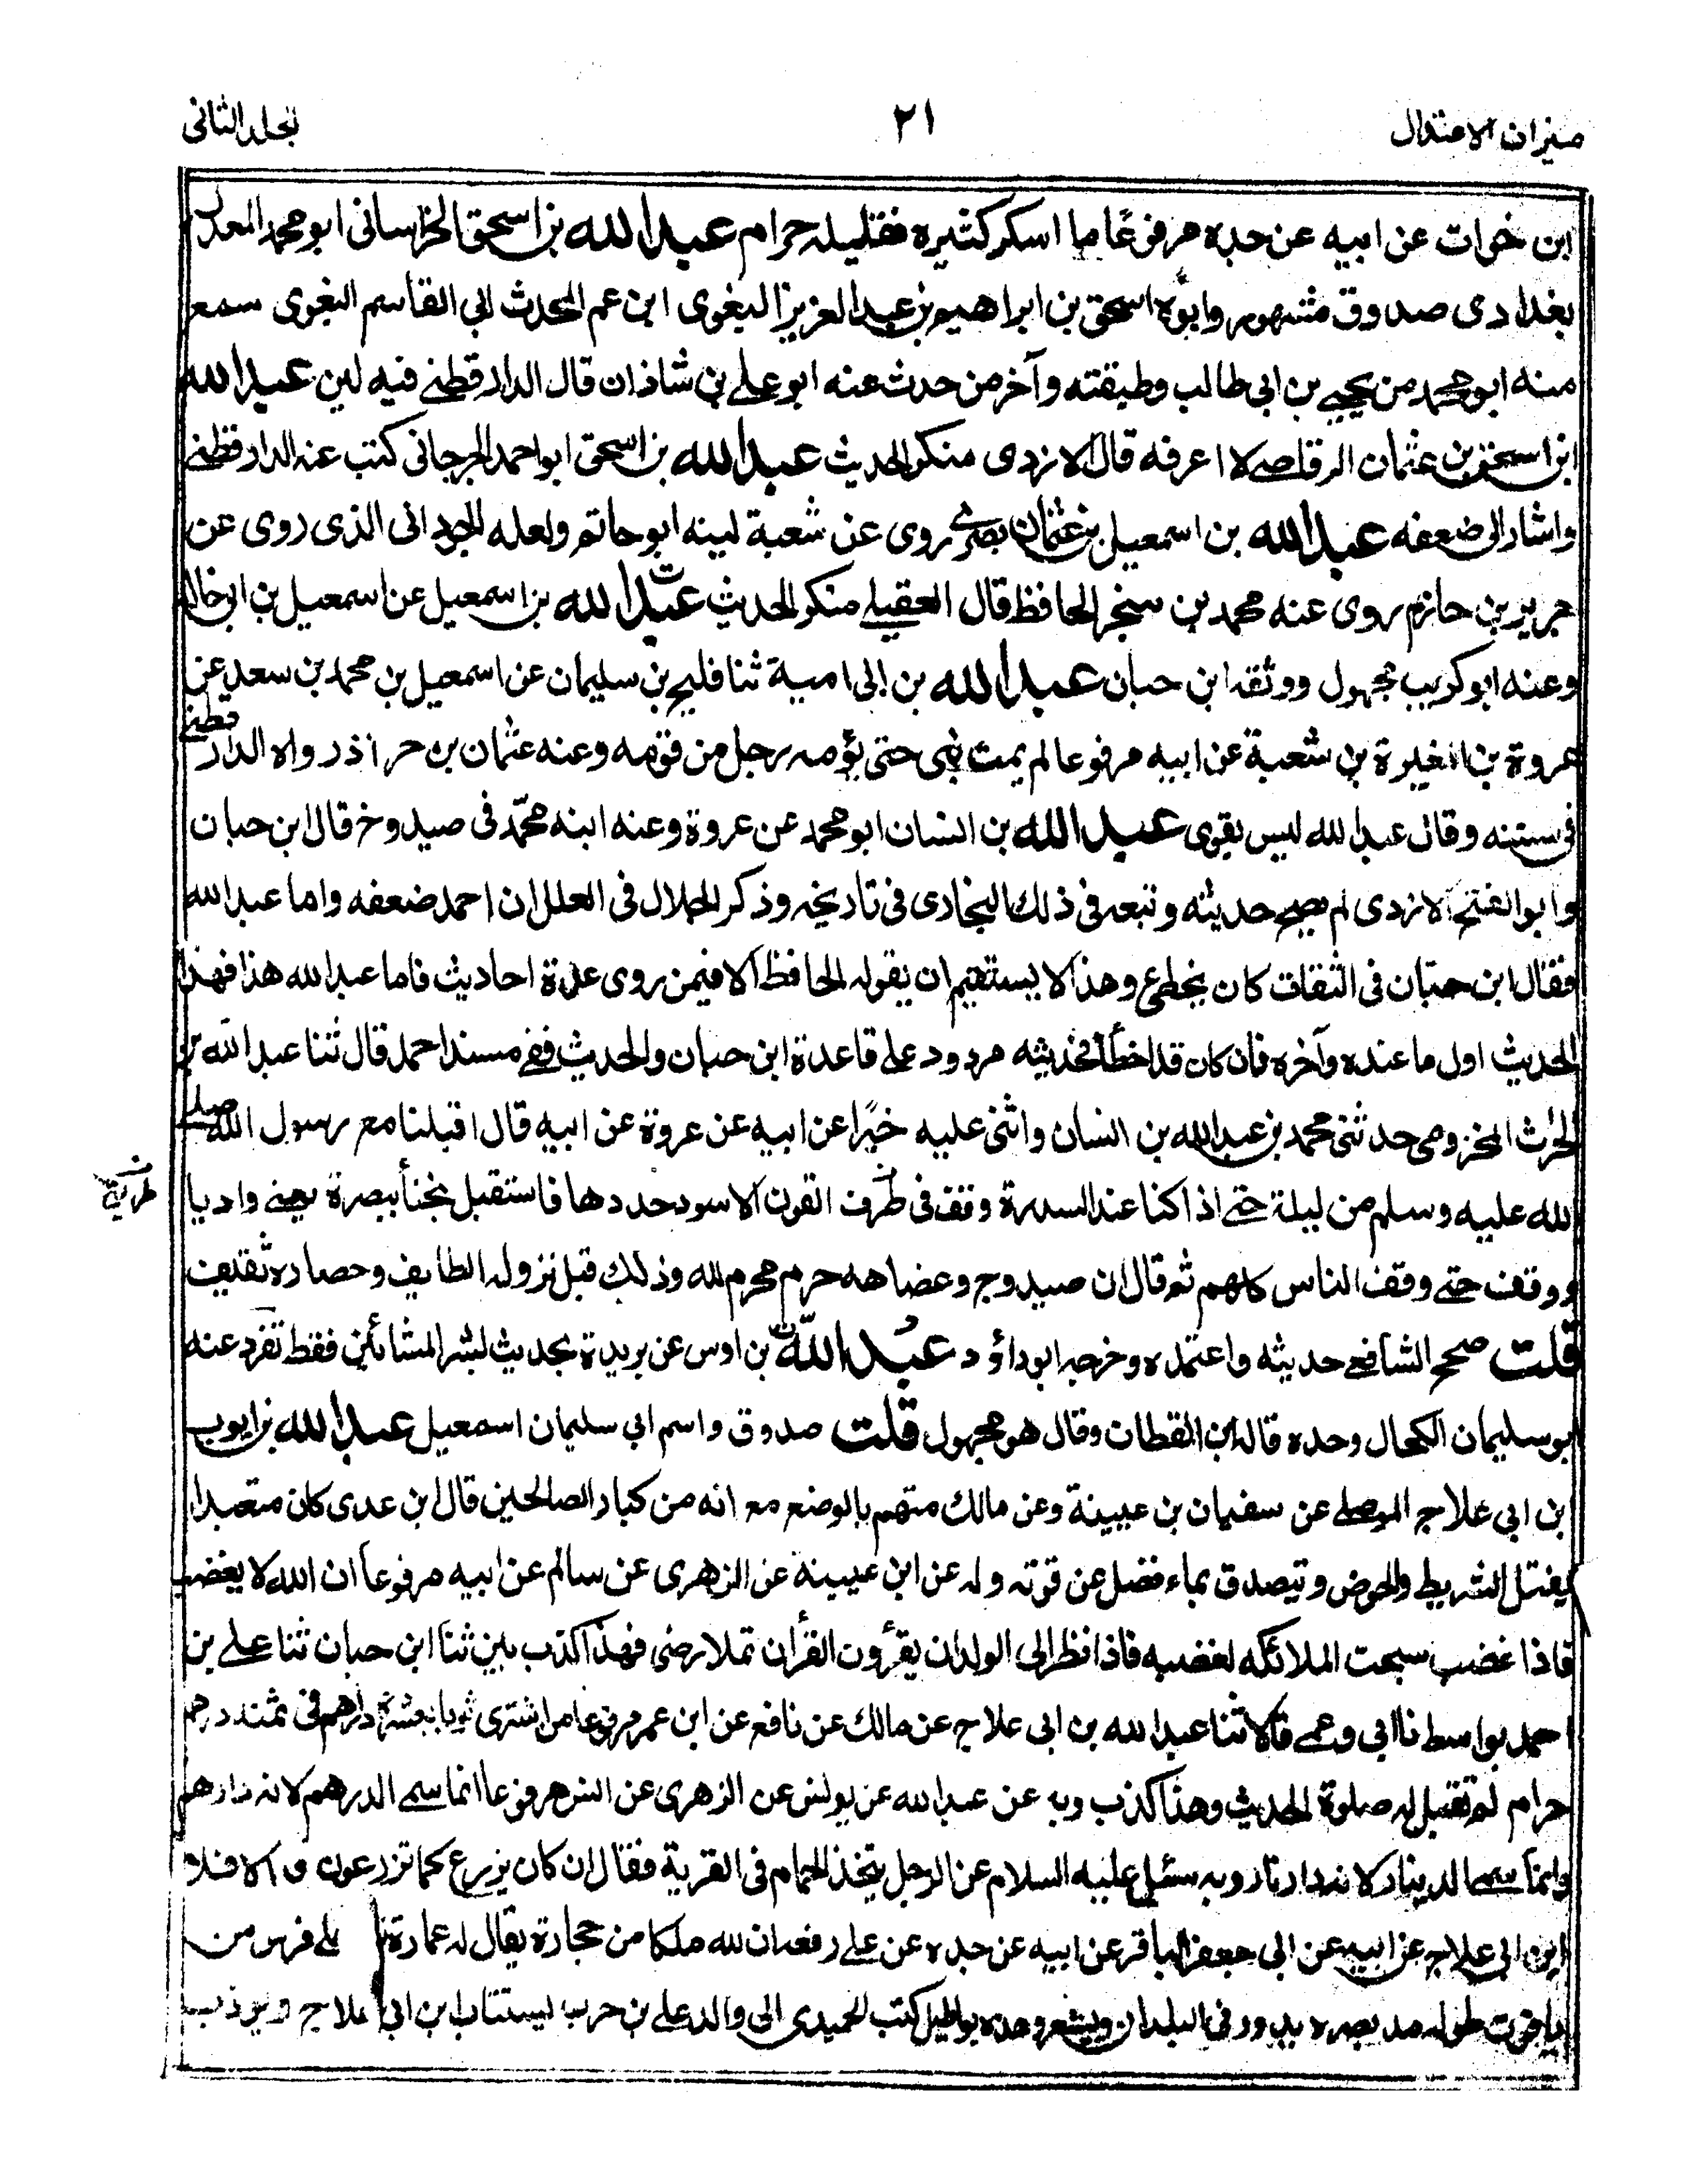 ميزان الاعتدال
٢١
تجلد الثانى
ابن خوات عن ابيه عن جده مرفوعًا ما اسكر كثيره فقليله حرام عبد الله بن اسحق الخراسانى ابو محمد المعدل
بغدادى صدوق مشهور وابوه اسحق بن ابراهيم بن عبد العزيز البغوى ابن عم المحدث ابي القاسم البغوى سمع
منه ابو محمد من يحيى بن ابى طالب وطبقته وآخر من حدث عنه ابو على بن شاذان قال الدارقطنے فيه لين عبد الله
ابن اسحق بن عثمان الوقاصے لا اعرفه قال الازدى منكر الحديث عبد الله بن اسحق ابو احمد الجرجانى كتب عنه الدارقطنے
واشار الى ضعفه عبد الله بن اسمعيل بن عثمان بصرے روى عن شعبة لينه ابو حاتم ولعله الجودانى الذى روى عن
جرير بن حازم روى عنه محمد بن سنجر الحافظ قال العقيلے منكر الحديث ت عبد الله بن اسمعيل عن اسمعيل بن ابى خالد
وعنه ابو كريب مجهول ووثقه ابن حبان عبد الله بن ابى امية ثنا فليح بن سليمان عن اسمعيل بن محمد بن سعد عن
عروة بن المغيرة بن شعبة عن ابيه مرفوعا لم يمت نبى حتى يؤمه رجل من قومه وعنه عثمان بن خرزاذ رواه الدارقطنے
فى سننه وقال عبد الله ليس بقوى عبد الله بن انسان ابو محمد عن عروة وعنه ابنه محمّد فى صيد وج قال ابن حبان
وابو الفتح الازدى لم يصح حديثه وتبعه فى ذلك البخارى فى تاريخه وذكر الخلال فى العلل ان احمد ضعفه واما عبد الله
فقال ابن حبّان فى الثقات كان يخطئ وهذا لا يستقيم ان يقوله الحافظ الا فيمن روى عدة احاديث فاما عبد الله هذا فهذا
الحديث اول ما عنده وآخره فان كان قد اخطأ فحديثه مردود على قاعدة ابن حبان والحديث ففے مسند احمد قال ثنا عبد الله بن
الحرث المخزومى حدثنى محمد بن عبد الله بن انسان واثنى عليه خيرًا عن ابيه عن عروة عن ابيه قال اقبلنا مع رسول الله صلے
الله عليه وسلم من ليلة حتے اذا كنا عند السدرة وقف فى طرف القرن الاسود حددها فاستقبل نخبا ببصره يعنے واديا
ووقف حتے وقف الناس كلهم ثم قال ان صيد وج وعضاهه حرم محرم لله وذلك قبل نزوله الطايف وحصاره ثقيف
قلت صحح الشافعے حديثه واعتمده وخرجه ابو داؤد د ت عبد الله بن اوس عن بريدة بحديث بشر المشائين فقط تفرد عنه
ابو سليمان الكحال وحده قاله ابن القطان وقال هو مجهول قلت صدوق واسم ابي سليمان اسمعيل عبد الله بن ايوب
ابن ابى علاج الموصلے عن سفيان بن عيينة وعن مالك متهم بالوضع مع انه من كبار الصالحين قال ابن عدى كان متعبدا
يفتل الشريط والخوض ويتصدق بماء فضل عن قوته وله عن ابن عيينة عن الزهرى عن سالم عن ابيه مرفوعا ان الله لا يغضب
فاذا غضب سبحت الملائكه لغضبه فاذا نظر الى الولدان يقرؤن القرأن تملا رضى فهذا كذب بين ثنا ابن حبان ثنا علے بن
احمد بواسط نا ابى وعمے قالا ثنا عبد الله بن ابى علاج عن مالك عن نافع عن ابن عمر مرفوعا من اشترى ثوبا بعشرة دراهم فى ثمنه درهم
حرام لم تقبل له صلوة الحديث وهذا كذب وبه عن عبد الله عن يونس عن الزهرى عن انس مرفوعا انما سمے الدرهم لانه دار هم
وانما سمے الدينار لانه دار نار وبه سئل عليه السلام عن الرجل يتخذ الحمام فى القرية فقال ان كان يزرع كما تزرعون والا فلا
ابن ابى علاج عن ابيه عن ابى جعفر الباقر عن ابيه عن جده عن علے رفعه ان لله ملكا من حجارة يقال له عمارة على فرس من
ياقوت طوله مد بصره يدور فى البلدان ويسعر وحده بواطيل كتب الحميدى الى والد على بن حرب يستتاب ابن ابى علاج ويؤدب